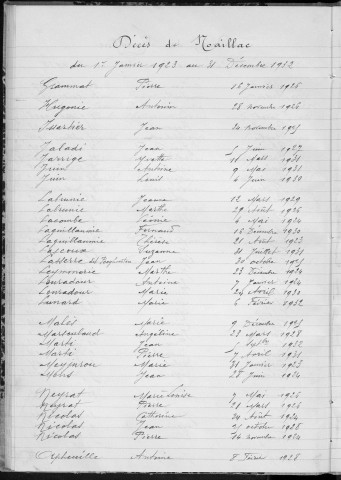 Décès de Noaillac
du 1er Janvier 1923 au 31 Décembre 1932
Grammat Pierre 16 Janvier 1926
Hugonie Antoine 28 novembre 1926
Issartier Jean 30 novembre 1925
Jaladi Jean 5 Juin 1927
Jarrige Miette 11 Mars 1931
Juin Antoine 9 Mai 1931
Juin Louis 4 Juin 1930
Labrunie Jeanne 12 Mars 1929
Labrunie Marthe 29 Août 1926
Lacombe Léonie 6 Mai 1924
Laguillaumie Fernand 16 Décembre 1930
Laguillaumie Thérèse 21 Août 1923
Lascoux Suzanne 31 Juillet 1931
Lasserre Jean 30 octobre 1925
Leymonerie Marthe 23 Décembre 1924
Louradour Antoine 7 Janvier 1924
Louradour Marie 24 Avril 1930
Marie 6 Février 1932
Malès Marie 9 Décembre 1925
Angéline 22 Mars 1928
Marty Jean 1932
Marty Pierre 7 Avril 1931
Meyjaron Marie 31 Janvier 1923
Jean 28 Juin 1924
Neyrat Marie Louise 7 Mai 1926
Neyrat Pierre 21 Mars 1926
Nicolas Catherine 24 Août 1924
Nicolas Jean 31 octobre 1928
Nicolas Pierre 14 novembre 1924
Antoine 8 Février 1928